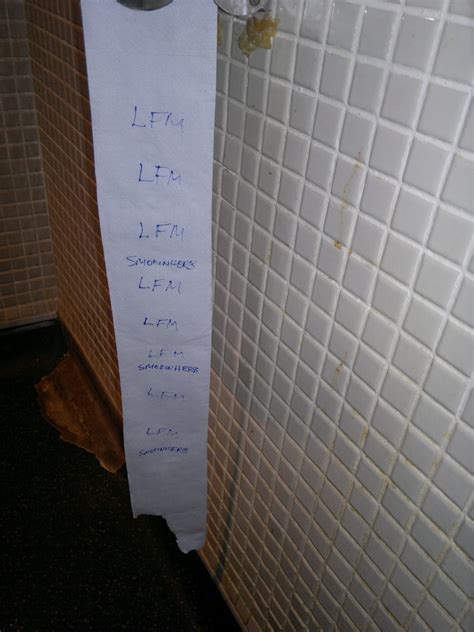 LFM
LFM
LFM
SMOKINHERB
LFM
LFM
LFM
SMOKINHERB
LFM
LFM
SMOKINHERB